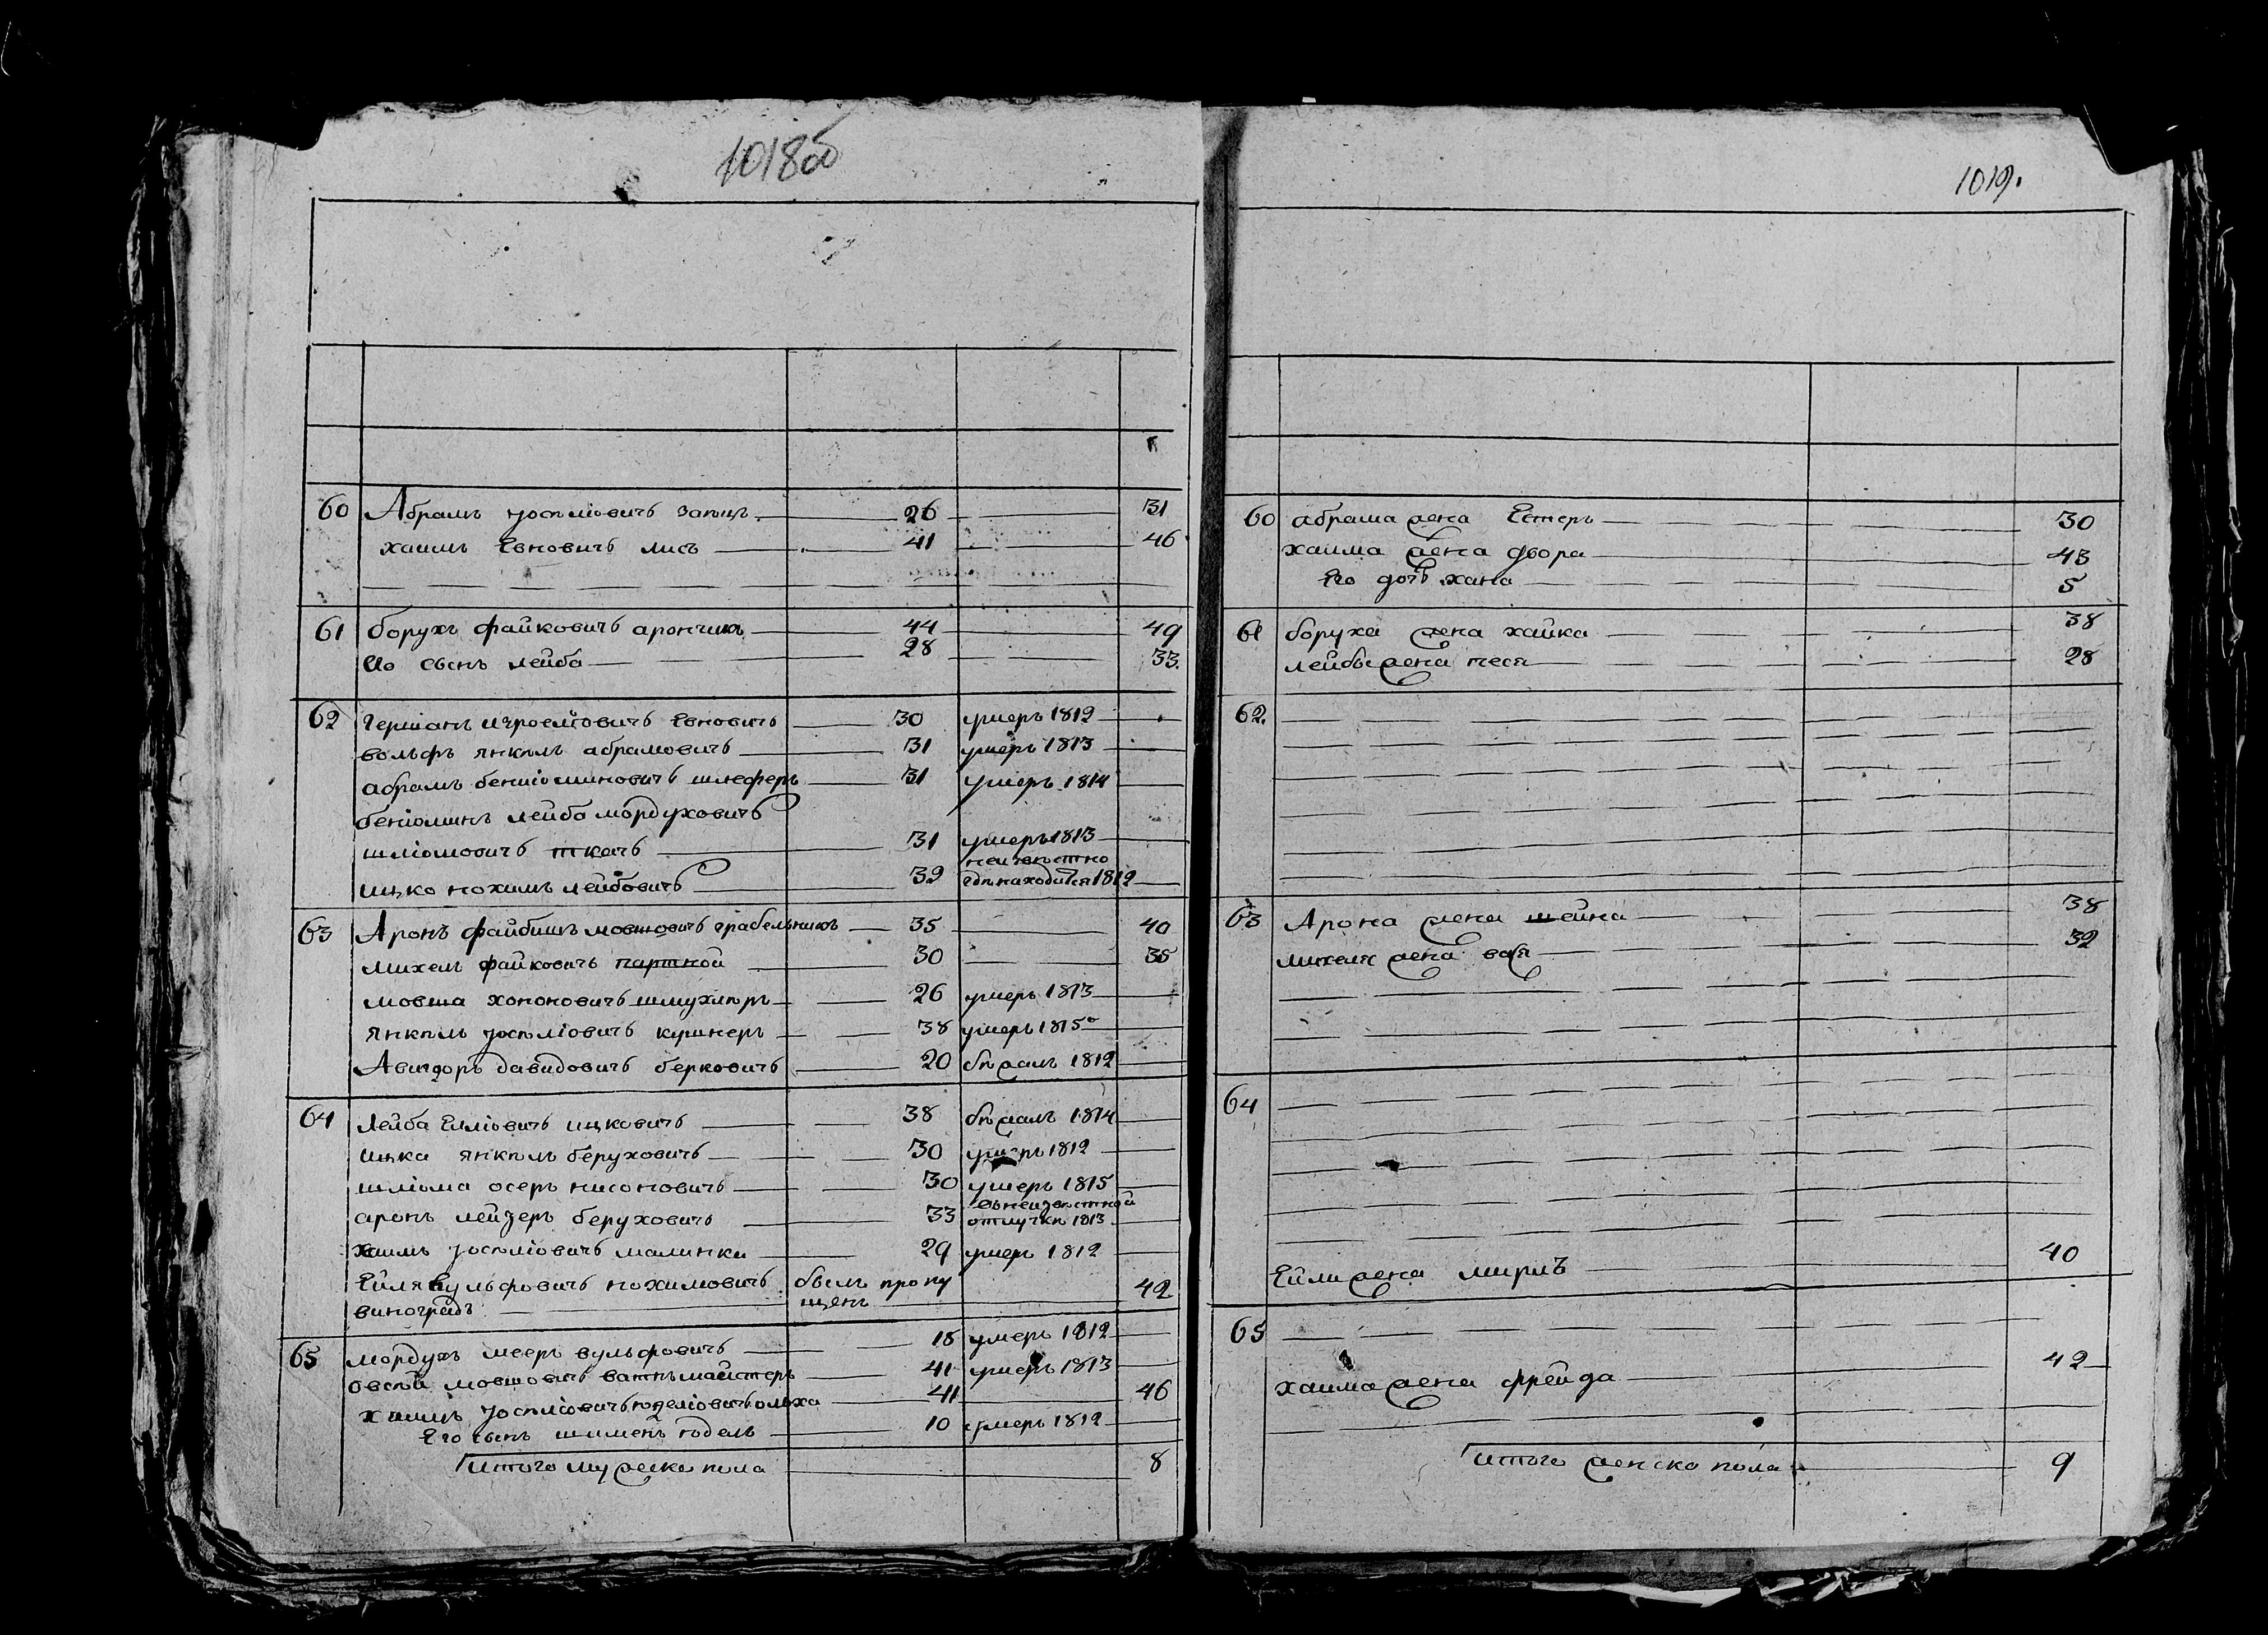 1018об
60 Абрамъ Иоселіовичъ Заяцъ 26 31
хаимъ Евновичъ лисъ 41 46
61 борухъ файковичъ арончикъ 44 49
Его сынъ лейба 28 33
62 Гершанъ Евновичъ 30 умеръ 1812
вольфъ янкель абрамовичъ 31 умеръ 1813
абрамъ беніоминовичъ шлеферъ 31 умеръ 1814
беніоминъ лейба мордуховичъ
шліомовичъ ткачъ 31 умеръ 1813
неизвѣстно
ицко нохимъ лейбовичъ 39 гдѣ находится 1812
63 Аронъ файбишъ мовшовичъ грабельникъ 35 40
михель файковичъ партной 30 35
мовша хононовичъ шмухлеръ 26 умеръ 1813
янкель иоселіовичъ кушнеръ 38 умеръ 1815
Авигдоръ давидовичъ берковичъ 20 бѣжалъ 1812
64 Лейба Еиліовичъ ицковичъ 38 бѣжалъ 1814
ицка янкель беруховичъ 30 умеръ 1812
шліома осеръ нисоновичъ 30 умеръ 1815
въ неизвѣстной
аронъ лейзеръ беруховичъ 33 отлучкѣ 1813
хаимъ иоселіовичъ малинка 29 умеръ 1812
Ейля вульфовичъ нохимовичъ былъ пропу
виноградъ щенъ 42
65 мордухъ мееръ вульфовичъ 18 умеръ 1812
овсѣй мовшовичъ ватнъмайстеръ 41 умеръ 1813
хаимъ иоселіовичъ юделіовичъ ольха 41 46
Его сынъ шименъ юдель 10 умеръ 1812
Итого мужеска пола 8
1019.
60 абрама жена Естеръ 30
хаима жена двора 43
Его дочь хана 5
61 боруха жена хайка 38
лейбы жена песя 28
62.
63 Арона жена шейна 38
михеля жена вася 32
64
Ейли жена мирлъ 40
65
хаима жена фрейда 42
Итого женска пола 9